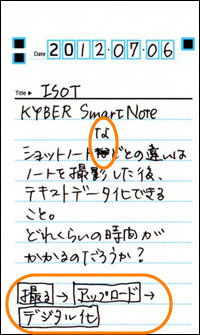 Date 2012・07・06
Title▶ ISOT
KYBER SmartNote
な
ショットノートどとの違いは
ノートを撮影した後、
テキストデータ化できる
こと。
どれくらいの時間が
かかるのだろうか？
撮る→アップロード→
デジタル化